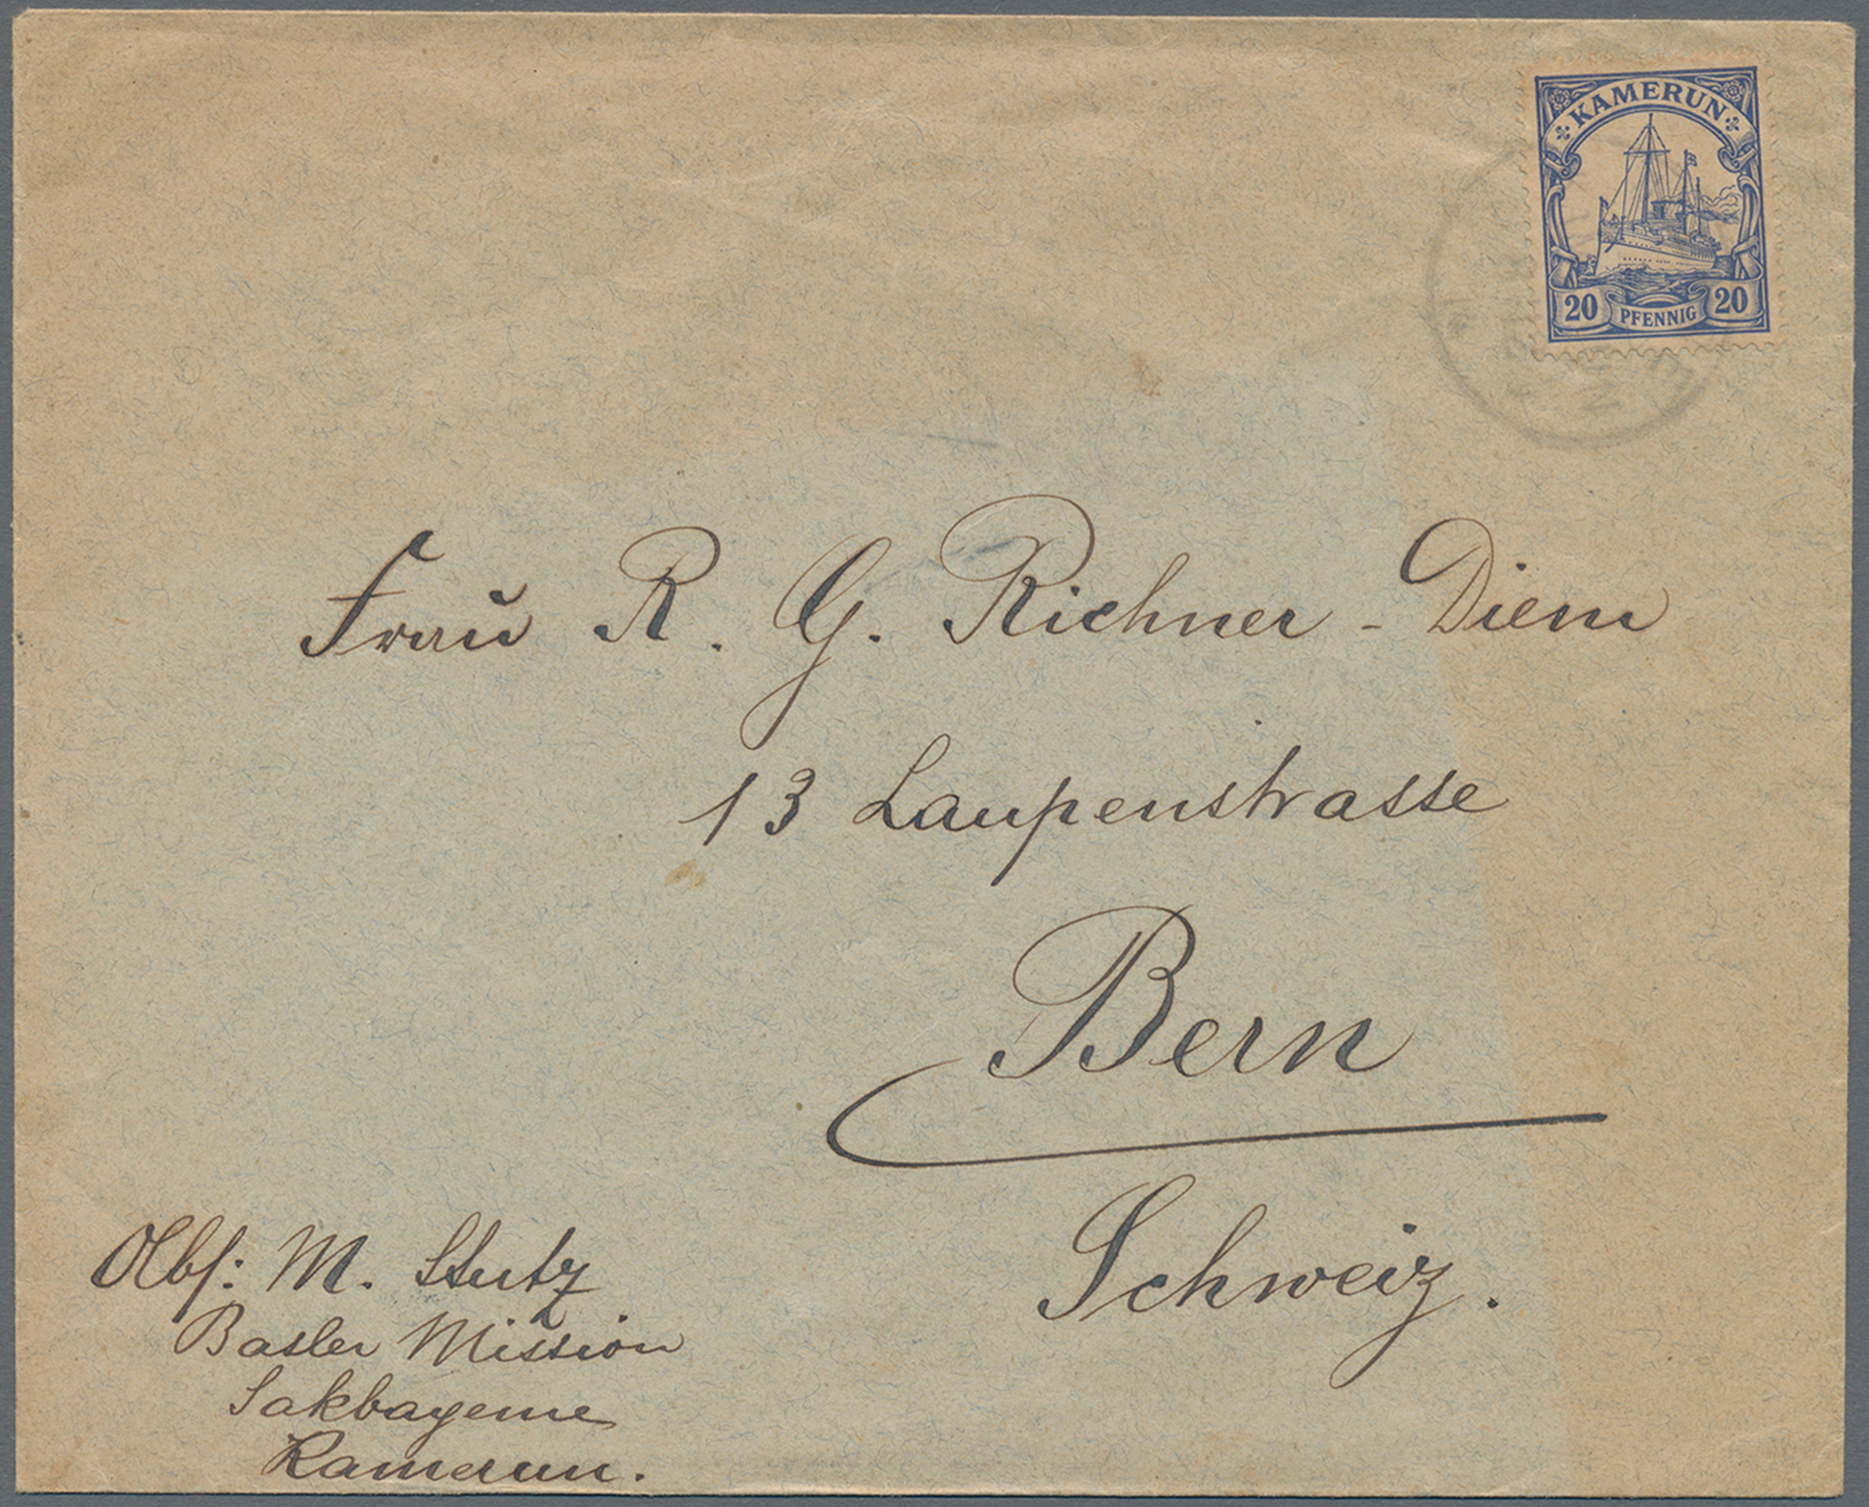 KAMERUN
20 PFENNIG 20
Frau R. G. Richner - Diem
13 Laupenstrasse
Bern
Schweiz.
Abs: M. Stutz
Basler Mission
Sakbayeme
Kamerun.